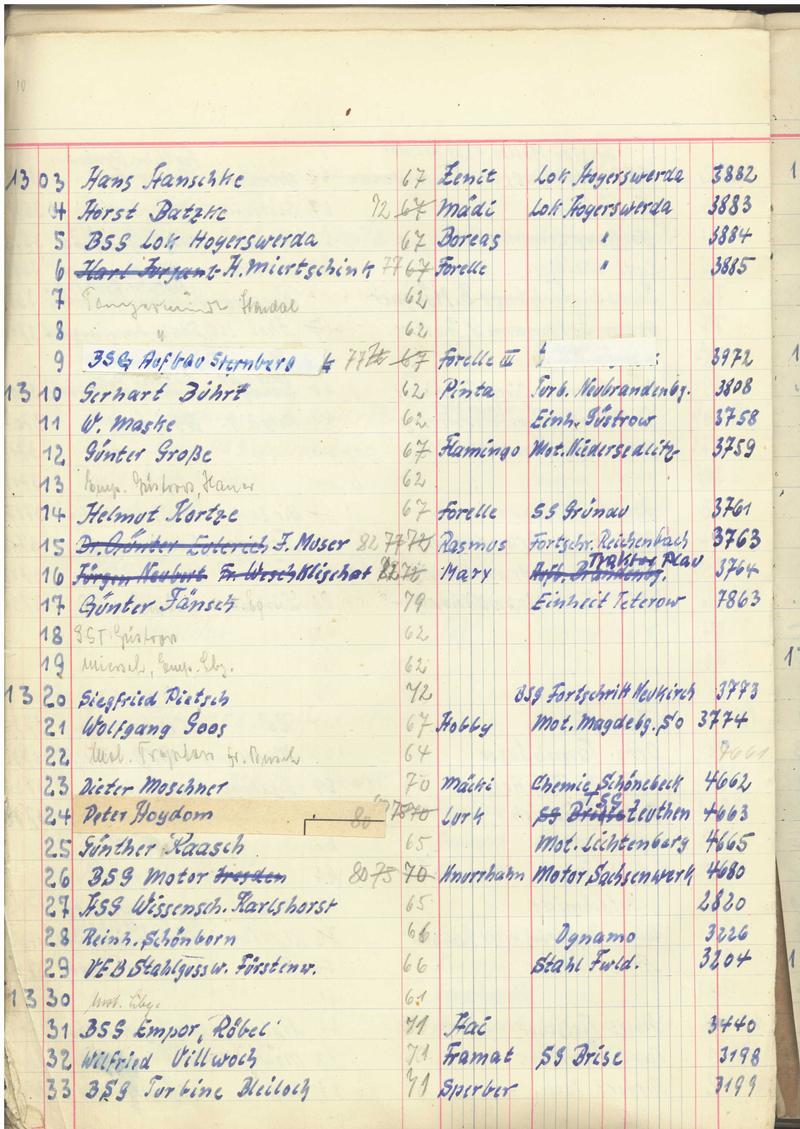 1303 Hans Hanschke 67 Zenit Lok Hoyerswerda 3882
4 Horst Batzke 72 67 Mädi Lok Hoyerswerda 3883
5 BSG Lok Hoyerswerda 67 Boreas " 3884
6 H. Miertschink 77 67 Forelle " 3885
7 Stendal 62
8 " 62
9 BSG Aufbau Sternberg 77 67 Forelle III 3972
1310 Gerhart Bührt 62 Pinta Turb. Neubrandenbg. 3808
11 W. Maske 62 Einh. Güstrow 3758
12 Günter Große 67 Flamingo Mot. Niedersedlitz 3759
13 Emp. Güstrow, 62
14 Helmut Kortze 67 Forelle SG Grünau 3761
15 Dr. Günter F. Moser 82 77 72 Rasmus Fortschr. Reichenbach 3763
16 Jürgen Neubert Fr. Wesch Klischat 82 72 Marx Aufb. Brandenbg. Traktor Plau 3764
17 Günter Fänsch 79 Einheit Teterow 7863
18 GST Güstrow 62
19 62
1320 Siegfried Pietsch 72 BSG Fortschritt Neukirch 3773
21 Wolfgang Goos 67 Hobby Mot. Magdebg. SO 3774
22 64
23 Dieter Moschner 70 Mäcki Chemie Schönebeck 4662
24 Peter Hoydom 80 75 70 Lurk SG TSG Zeuthen 4663
25 Günther Kaasch 65 Mot. Lichtenberg 4665
26 BSG Motor Dresden 80 75 70 Knurrhahn Motor Sachsenwerk 4680
27 HSG Wissensch. Karlshorst 65 2820
28 Reinh. Schönborn 66 Dynamo 3226
29 VEB Stahlgussw. Fürstenw. 66 Stahl Fwld. 3204
1330 61
31 BSG Empor 'Röbel' 71 Hai 3440
32 Wilfried Villwoch 71 Framat SG Brise 3198
33 BSG Turbine Bleiloch 71 Sperber 3199